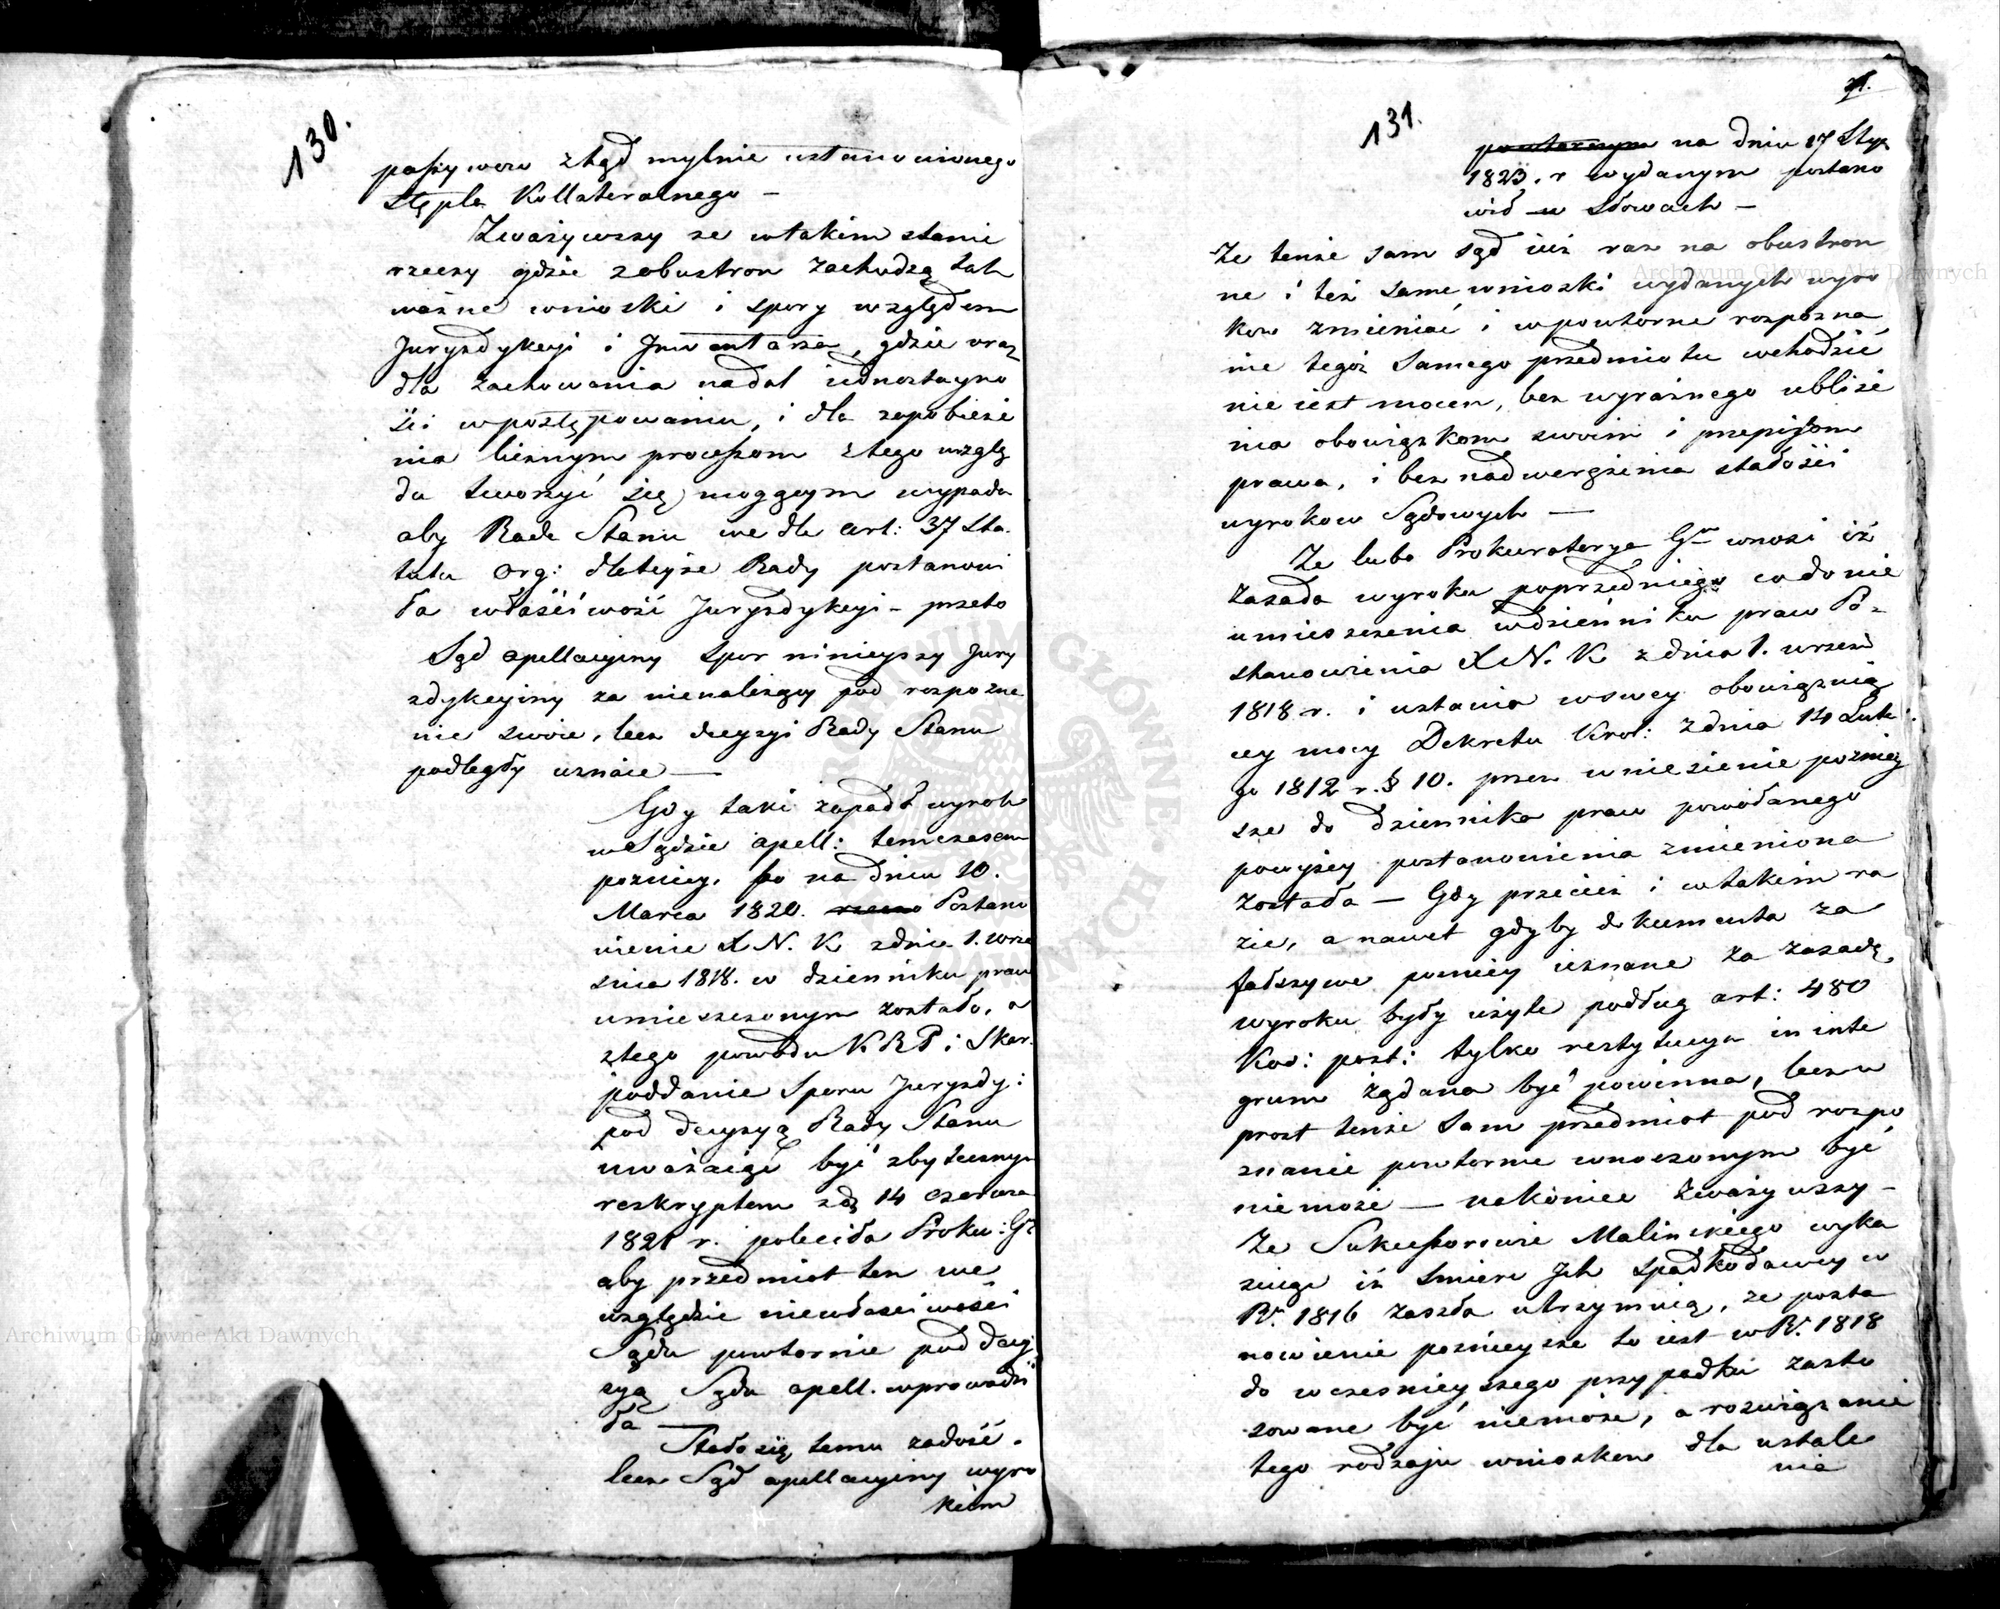 130.
passywow ztąd mylnie ustanowionego
stępla Kollateralnego —
Zważywszy że wtakim stanie
rzeczy gdzie zobustron zachodzą tak
ważne wnioski i spory względem
Juryzdykcyi i Inwentarza, gdzie oraz
dla zachowania nadal iednostayno
ści wpostępowaniu, i dla zapobieże
nia licznym processom ztego wzglę
du tworzyć się mogącym wypada
aby Rada Stanu we dle art: 37 Sta.
tutu Org: dlateyże Rady postanowi
ła właściwość Juryzdykcyi – przeto
Sąd apellacyiny spor ninieyszy Jury
zdykcyiny za nienależący pod rozpozna
nie swoie, lecz decyzyi Rady Stanu
podległy uznaie —
Gdy taki zapadł wyrok
w Sądzie apell: temczasem
pozniey, bo na dniu 20.
Marca 1820. Postano
wienie X N. K zdnia 1. Wrze
snia 1818. w dzienniku praw
umieszczonym zostało, a
ztego powodu K R P i Skar.
poddanie Sporu Juryzdy:
pod decyzyą Rady Stanu
uważaiąc być zbytecznym
reskryptem zd. 14 czerwca
1821 r. poleciła Proku: Gl
aby przedmiot ten we
względzie niewłasciwości
Sądu powtornie pod decy
zyą Sądu apell. wprowadzi
ła —
Stało się temu zadość.
lecz Sąd apellacyiny wyro
kiem
131.
71.
powtornym na dniu 17 Stycz
1823. r wydanym postano
wił w słowach —
Że tenże sam sąd iuż raz na obustron
ne i też same wnioski wydanych wyro
kow zmieniać i wpowtorne rozpozna
nie tegoż samego przedmiotu wchodzić
nie iest mocen, bez wyraźnego ubliże
nia obowiązkom swoim i przepisom
prawa, i bez nadwerężenia stałości
wyrokow Sądowych —
Że lubo Prokuratorya Gna wnosi iż
zasada wyroku poprzedniego co do nie
umieszczenia wdzienniku praw Po=
stanowienia X N. K z dnia 1. wrześ
1818 r. i ustania wswey obowiązuią
cey mocy Dekretu Krol: zdnia 14 Lute
go 1812 r. § 10. przez wniesienie pozniey
sze do dziennika praw powołanego
powyżey postanowienia zmieniona
została — Gdy przecież i wtakim ra
zie, a nawet gdyby dokumenta za
fałszywe pozniey uznane za zasadę
wyroku były użyte podług art: 480
Kod: post: tylko restytucya in inte
grum żądana być powinna, lecz w
prost tenże sam przedmiot pod rozpo
znanie powtorne wnoszonym być
nie może — nakoniec zważywszy –
Że Sukcessorowie Malinskiego wyka
zuiąc iż śmierć Jch spadkodawcy w
R. 1816 zaszła utrzymuią, że posta
nowienie poznieysze to iest w R. 1818
do wczesnieyszego przypadku zasto
sowane być niemoże, a rozwiązanie
tego rodzaju wnioskow dla ustale
nia